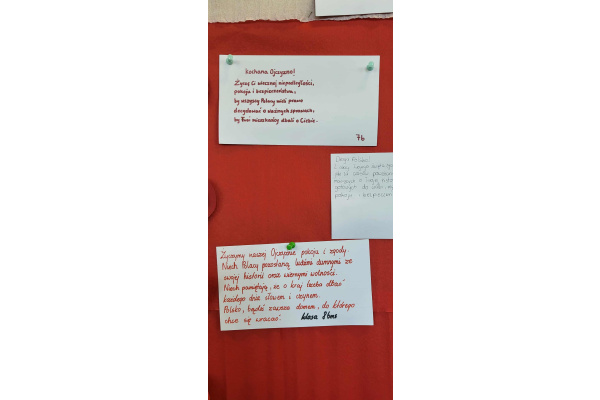 Kochana Ojczyzno!
Życzę Ci wiecznej niepodległości,
pokoju i bezpieczeństwa,
by wszyscy Polacy mieli prawo
decydować o ważnych sprawach,
by Twoi mieszkańcy dbali o Ciebie.
7b
Droga Polsko
pokoju i bezpieczeń
Życzymy naszej Ojczyźnie pokoju i zgody.
Niech Polacy pozostaną ludźmi dumnymi ze
swojej historii oraz wiernymi wolności.
Niech pamiętają, że o kraj trzeba dbać
każdego dnia słowem i czynem.
Polsko, bądź zawsze domem, do którego
chce się wracać.
klasa 8bms